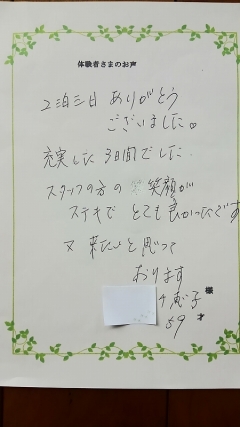 体験者さまのお声
2泊三日 ありがとう
ございました。
充実した 3日間でした
スタッフの方の 笑顔が
ステキで とても良かったです
又 来たいと思って
おります
恵子 様
59 才